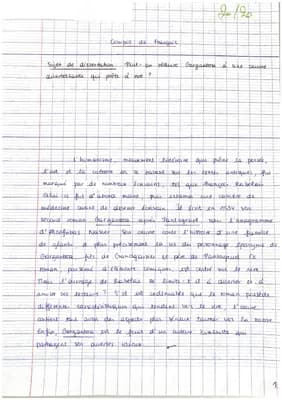 20/20
Compo de Français
Sujet de dissertation : Peut-on réduire Gargantua à une œuvre
divertissante qui prête à rire ?
L'humanisme, mouvement littéraire qui prône la pensée,
et la culture en se basant sur les textes antiques, fut
marqué par de nombreux écrivains, tel que François Rabelais.
Celui ci fut d'abord moine, puis entama une carrière de
médecine avant de devenir écrivain. Il écrit en son
second roman Gargantua après Pantagruel, sous l'anagramme
d'Alcofribas Nasier. Son œuvre conte l'histoire d'une famille
de géants et plus précisément la vie du personnage éponyme de
Gargantua, fils de Grandgousier et père de Pantagruel. Ce
roman, parsemé d'éléments comiques, est centré sur le rire.
Mais l'ouvrage de Rabelais se limite-t-il à divertir et à
amuser ses lecteurs ? S'il est indéniable que le roman possède
différentes caractéristiques qui tendent vers le rire, l'œuvre
contient tout aussi des aspects plus sérieux tournés vers la
Enfin, Gargantua est le fruit d'un auteur humaniste qui
partageait ses diverses idées.
1